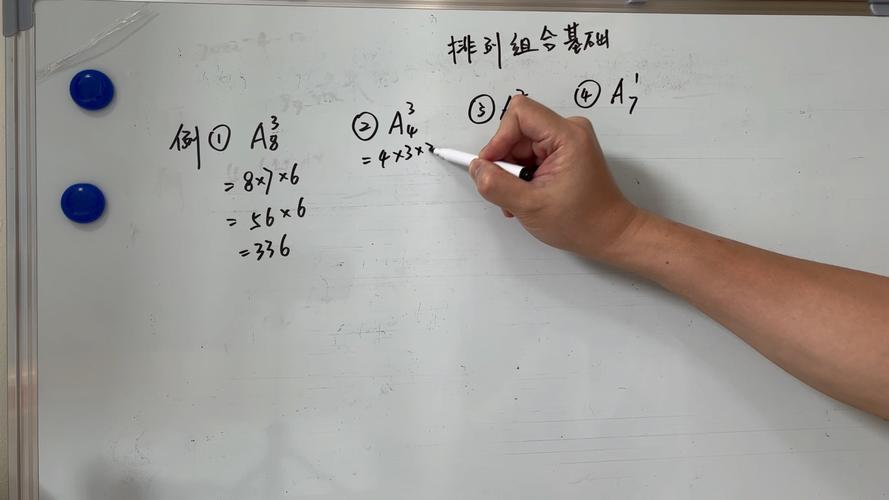 排列组合基础
例① A₈³
=8×7×6
=56×6
=336
② A₄³
=4×3×2
③ A
④ A₇¹